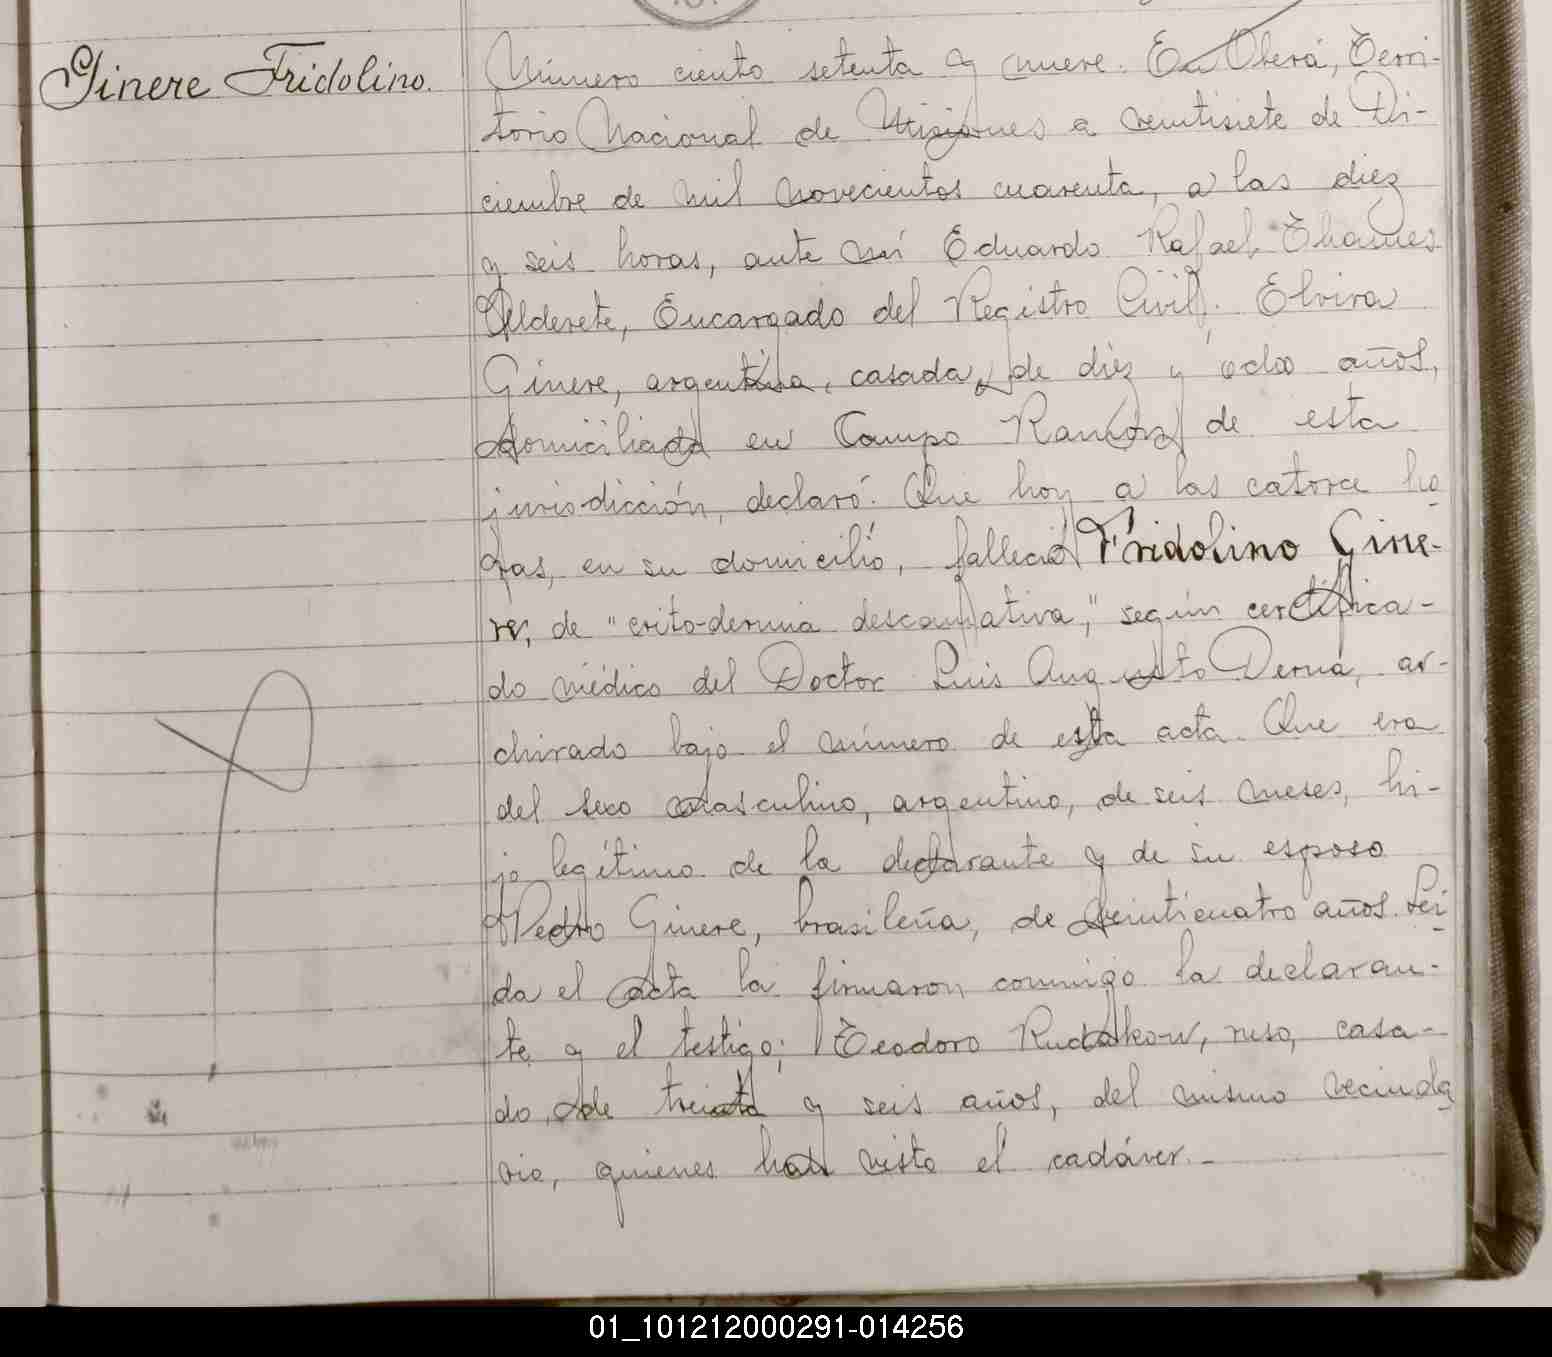 Ginere Fridolino.
Número ciento setenta y nueve. En Oberá, Terri-
torio Nacional de Misiones a veintisiete de Di-
ciembre de mil novecientos cuarenta, a las diez
y seis horas, ante mí Eduardo Rafael Thames
Alderete, Encargado del Registro Civil, Elvira
Ginere, argentina, casada, de diez y ocho años,
domiciliada en Campo Ramón de esta
jurisdicción, declaró: Que hoy a las catorce ho-
ras, en su domicilio, falleció Fridolino Gine-
re, de "erito-dermia descamativa," según certifica-
do médico del Doctor Luis Augusto Derna, ar-
chivado bajo el número de esta acta. Que era
del sexo masculino, argentino, de seis meses, hi-
jo legítimo de la declarante y de su esposo
Pedro Ginere, brasileña, de veinticuatro años. Leí-
da el acta la firmaron conmigo la declaran-
te y el testigo; Teodoro Rudakow, ruso, casa-
do, de treinta y seis años, del mismo vecinda
rio, quienes han visto el cadáver.-
01_101212000291-014256